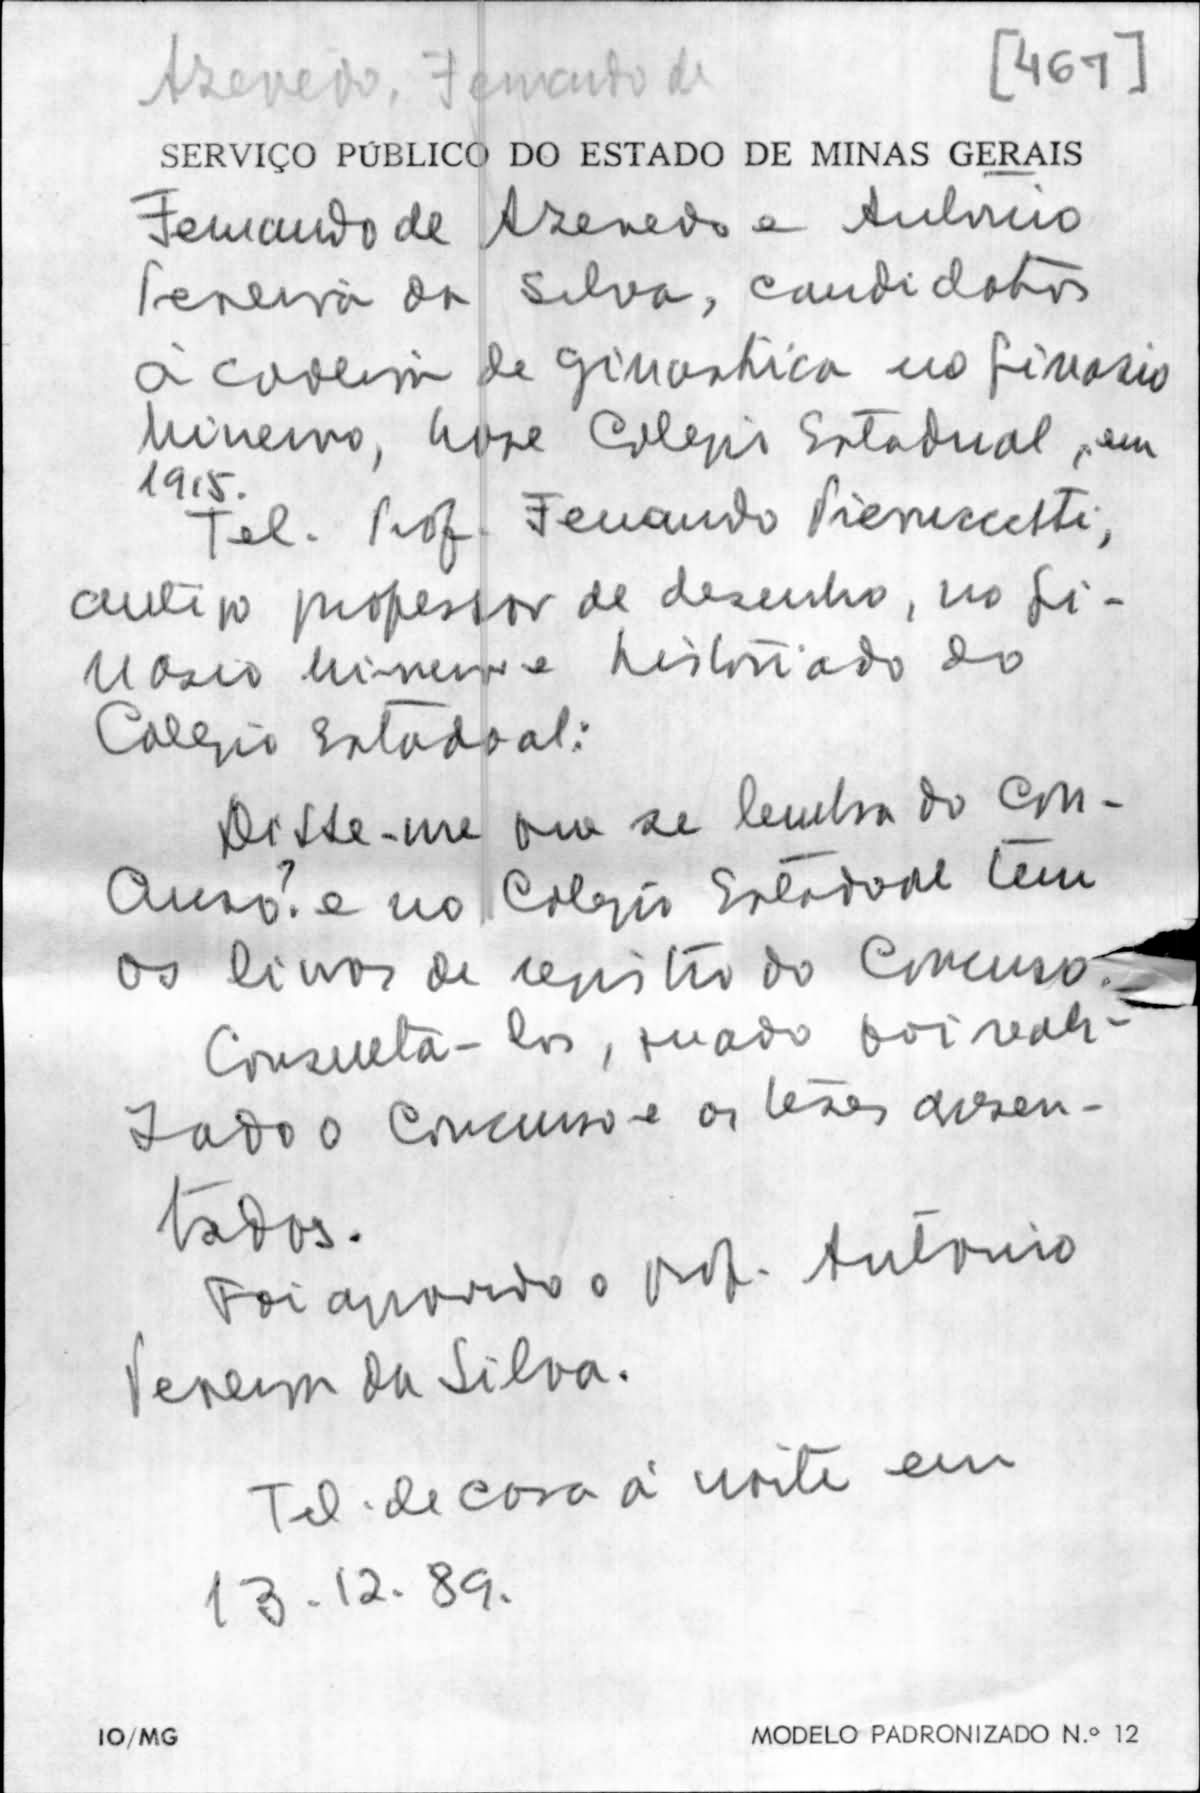 Azevedo, Fernando de
[467]
SERVIÇO PÚBLICO DO ESTADO DE MINAS GERAIS
Fernando de Azevedo e Antonio
Pereira da Silva, candidatos
à cadeira de ginastica no Ginasio
Mineiro, hoje Colegio Estadual, em
1915.
Tel. Prof. Fernando Pierruccetti,
antigo professor de desenho, no Gi-
nasio Mineiro e historiado do
Colegio Estadoal:
Disse-me que se lembra do con-
curso? e no Colegio Estadoal tem
os livros de registro do Concurso.
Consultá-los, quado foi reali-
zado o Concurso e as teses apresen-
tados.
Foi aprovado o prof. Antônio
Pereira da Silva.
Tel. de casa à noite em
13.12.89.
IO/MG
MODELO PADRONIZADO N.º 12